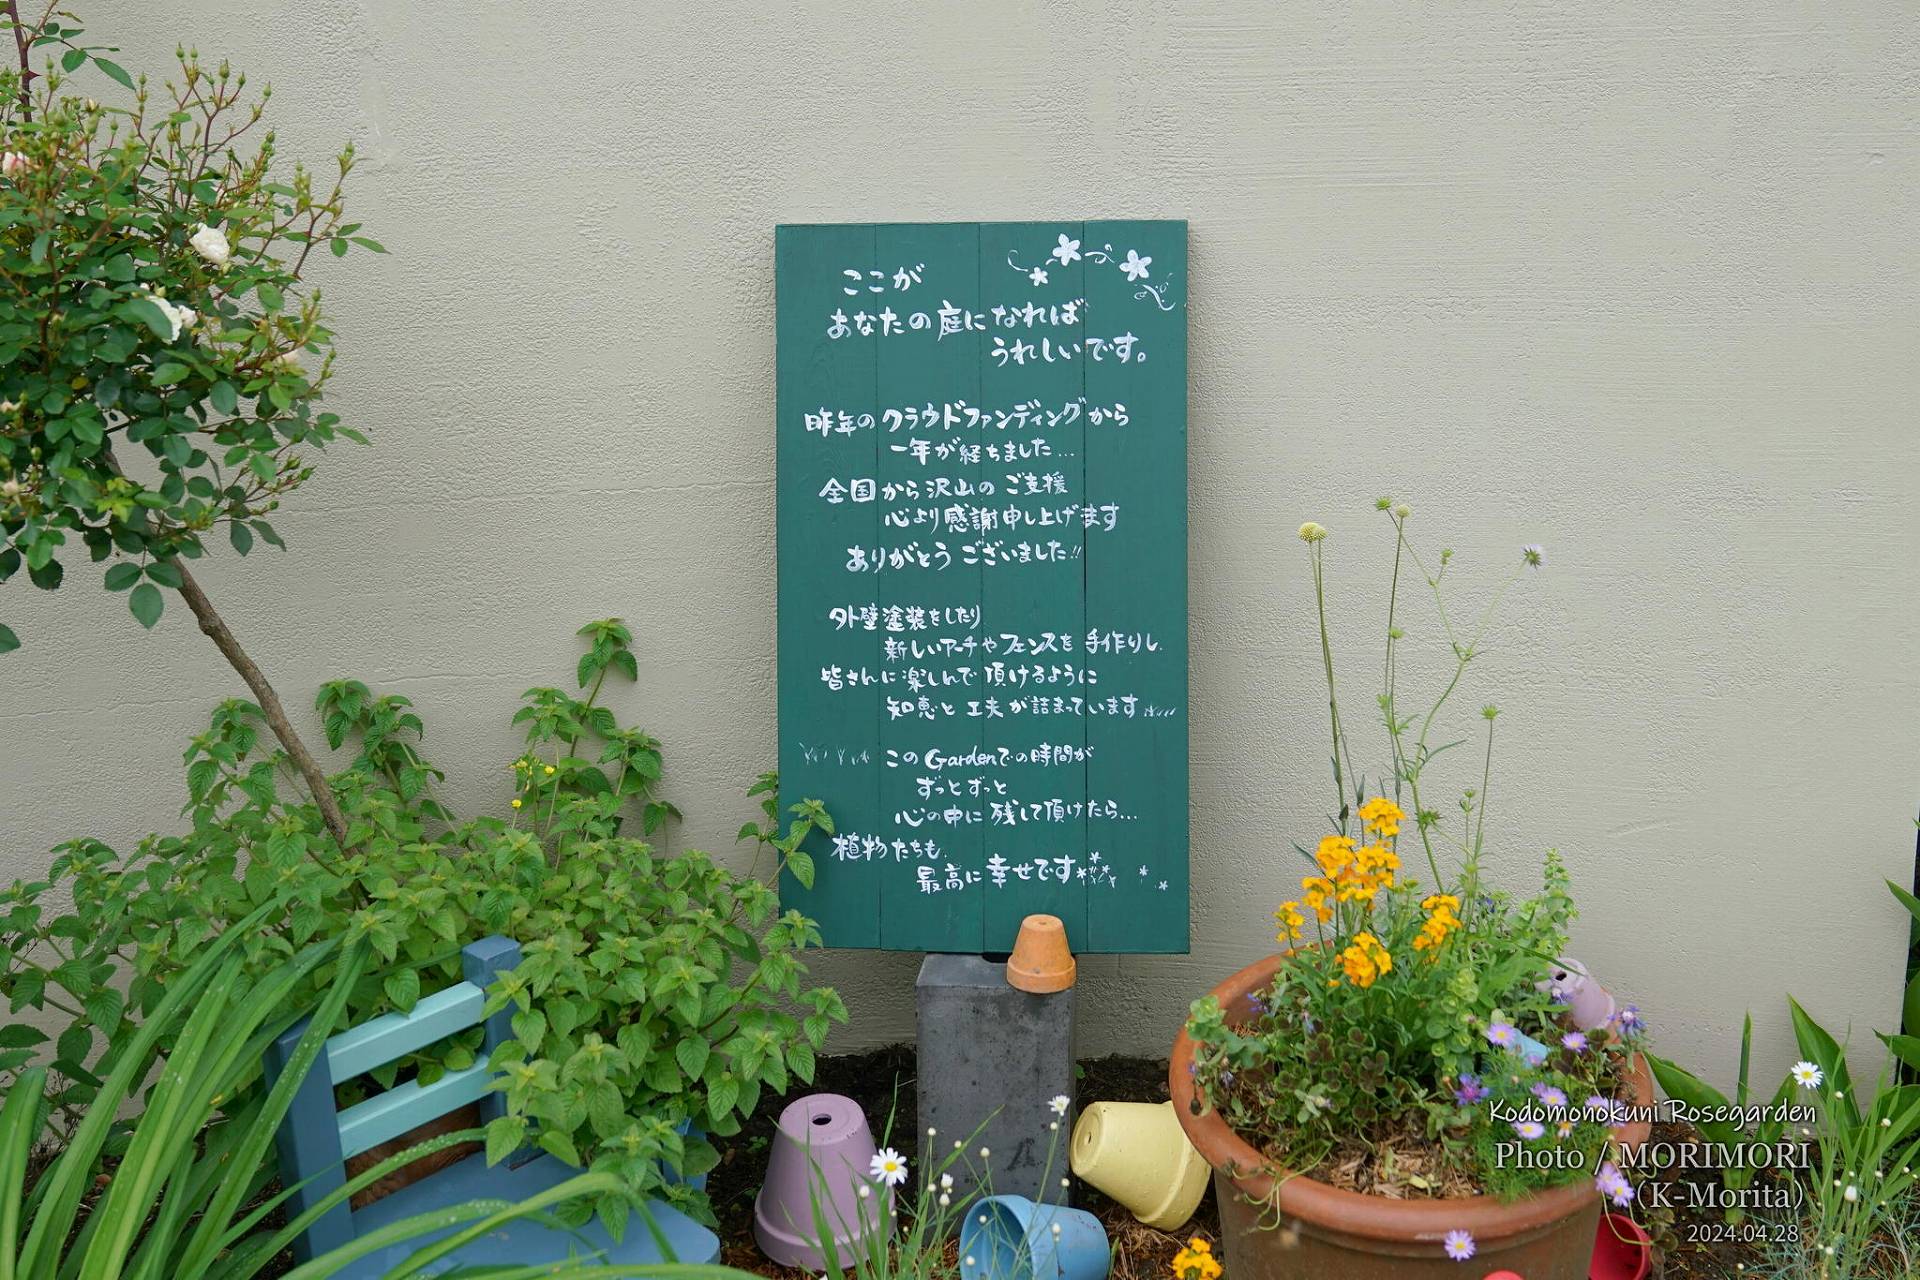 ここが
あなたの庭になれば
うれしいです。
昨年のクラウドファンディングから
一年が経ちました...
全国から沢山のご支援
心より感謝申し上げます
ありがとうございました!!
外壁塗装をしたり
新しいアーチやフェンスを手作りし、
皆さんに楽しんで頂けるように
知恵と工夫が詰まっています
このGardenでの時間が
ずっとずっと
心の中に残して頂けたら...
植物たちも、
最高に幸せです
Kodomonokuni Rosegarden
Photo / MORIMORI
(K-Morita)
2024.04.28